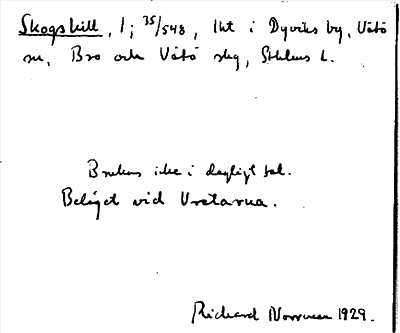 Skogshill, 1; 35/548, 1ht i Dyviks by, Vätö
sn, Bro och Vätö skg, Sthlms l.
Brukas icke i dagligt tal.
Beläget vid Vretarna.
Richard Norrman 1929.